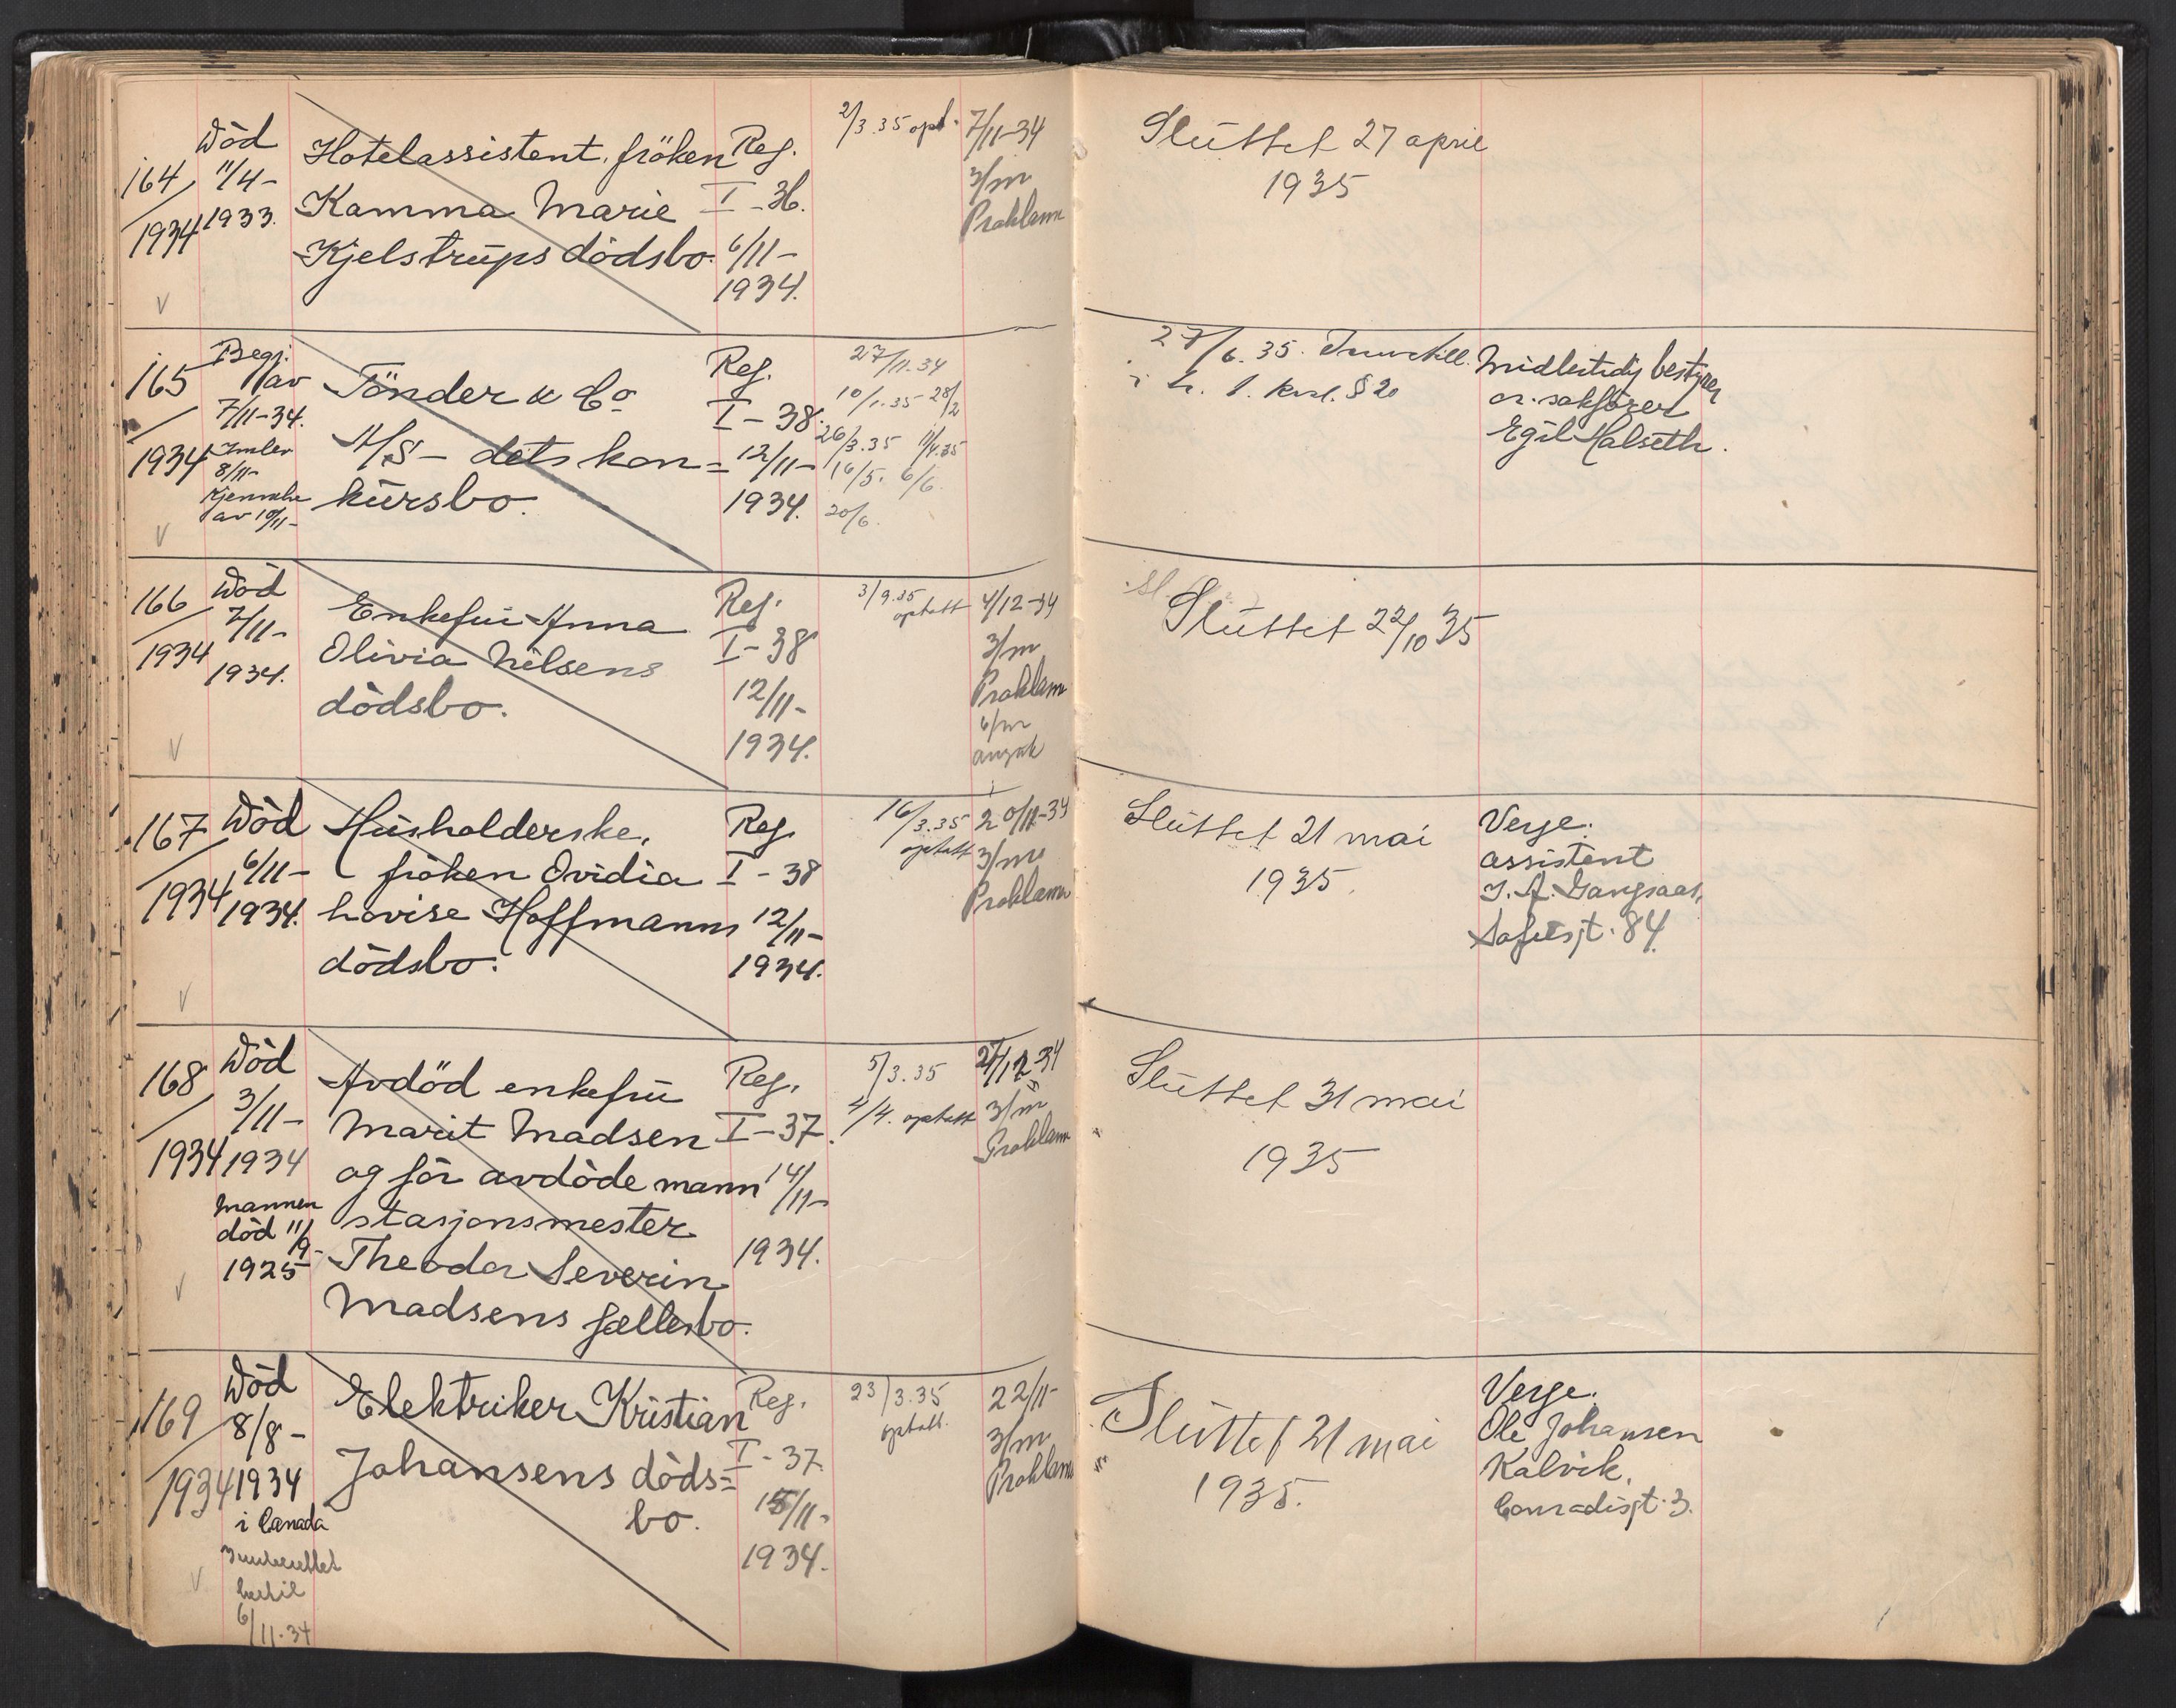 164/1934
Död 11/4-1933.
Hotelassistent, fröken
Kamma Marie
Kjelstrups dödsbo.
Reg.
I-36.
6/11-
1934.
2/3.35 opt.
7/11-34
3/m
Proklama
Sluttet 27 april
1935
165/1934
Begj.
av
7/11-34.
8/11-
av 10/11-
Tönder & Co
A/S - dets kon=
kursbo.
Reg.
I-38.
12/11-
1934.
27/11.34
10/1.35 28/2
26/3.35 11/4.35
16/5. 6/6.
20/6.
27/6.35. Innstill.
i h. t. kl. § 20
Midlertidig bestyrer
or. sakförer
Egil Halseth.
166/1934
Död
7/11-
1934.
Enkefru Anna
Olivia Nilsens
dödsbo.
Reg.
I-38
12/11-
1934.
3/9.35
optatt
4/12-34
3/m
Proklam
6/m
Sluttet 22/10 35
167/1934
Död
6/11-
1934.
Husholderske,
fröken Ovidia
Lovise Hoffmanns
dödsbo.
Reg.
I-38
12/11-
1934.
16/3.35
optatt
20/11-34
3/m
Proklama
Sluttet 21 mai
1935.
Verge:
assistent
J. A. Gangsaas,
168/1934
Död
3/11-
1934
Mannen
död 11/9-
1925
Avdöd enkefru
Marit Madsen
og för avdöde mann
stasjonsmester
Theodor Severin
Madsens fællesbo.
Reg.
I-37.
14/11-
1934.
5/3.35
4/4. optatt
27/12 34
3/m
Proklam
Sluttet 31 mai
1935
169/1934
Död
8/8-
1934
i Canada
6/11-34
Elektriker Kristian
Johansens döds=
bo.
Reg.
I-37.
15/11-
1934.
23/3.35
optatt.
22/11-
3/m
Proklama
Sluttet 21 mai
1935.
Verge:
Ole Johansen
Kalvik,
Conradisgt. 3.